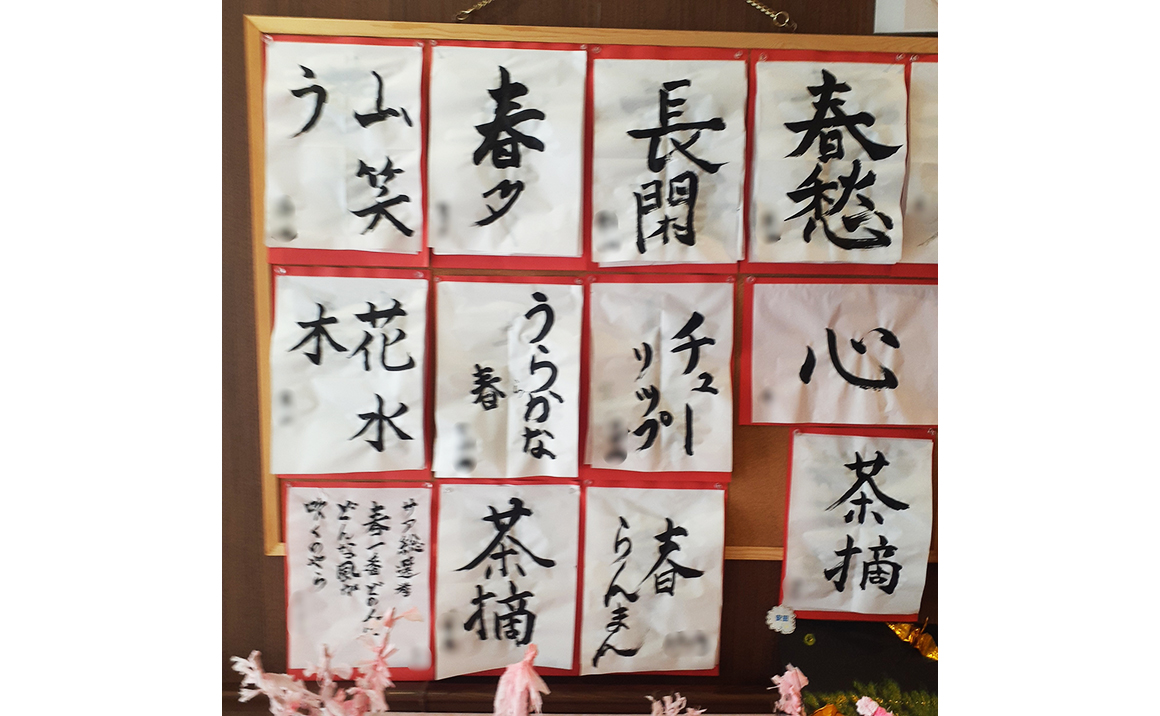 山笑
う
春夕
長閑
春愁
花水
木
うらかな
春
チュー
リップ
心
サア総選挙
春一番どの人に
どんな風が
吹くのやら
茶摘
春
らんまん
茶摘